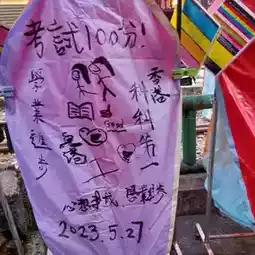 考試100分!
學業進步
科科第一
Good
心想事成
2023.5.27